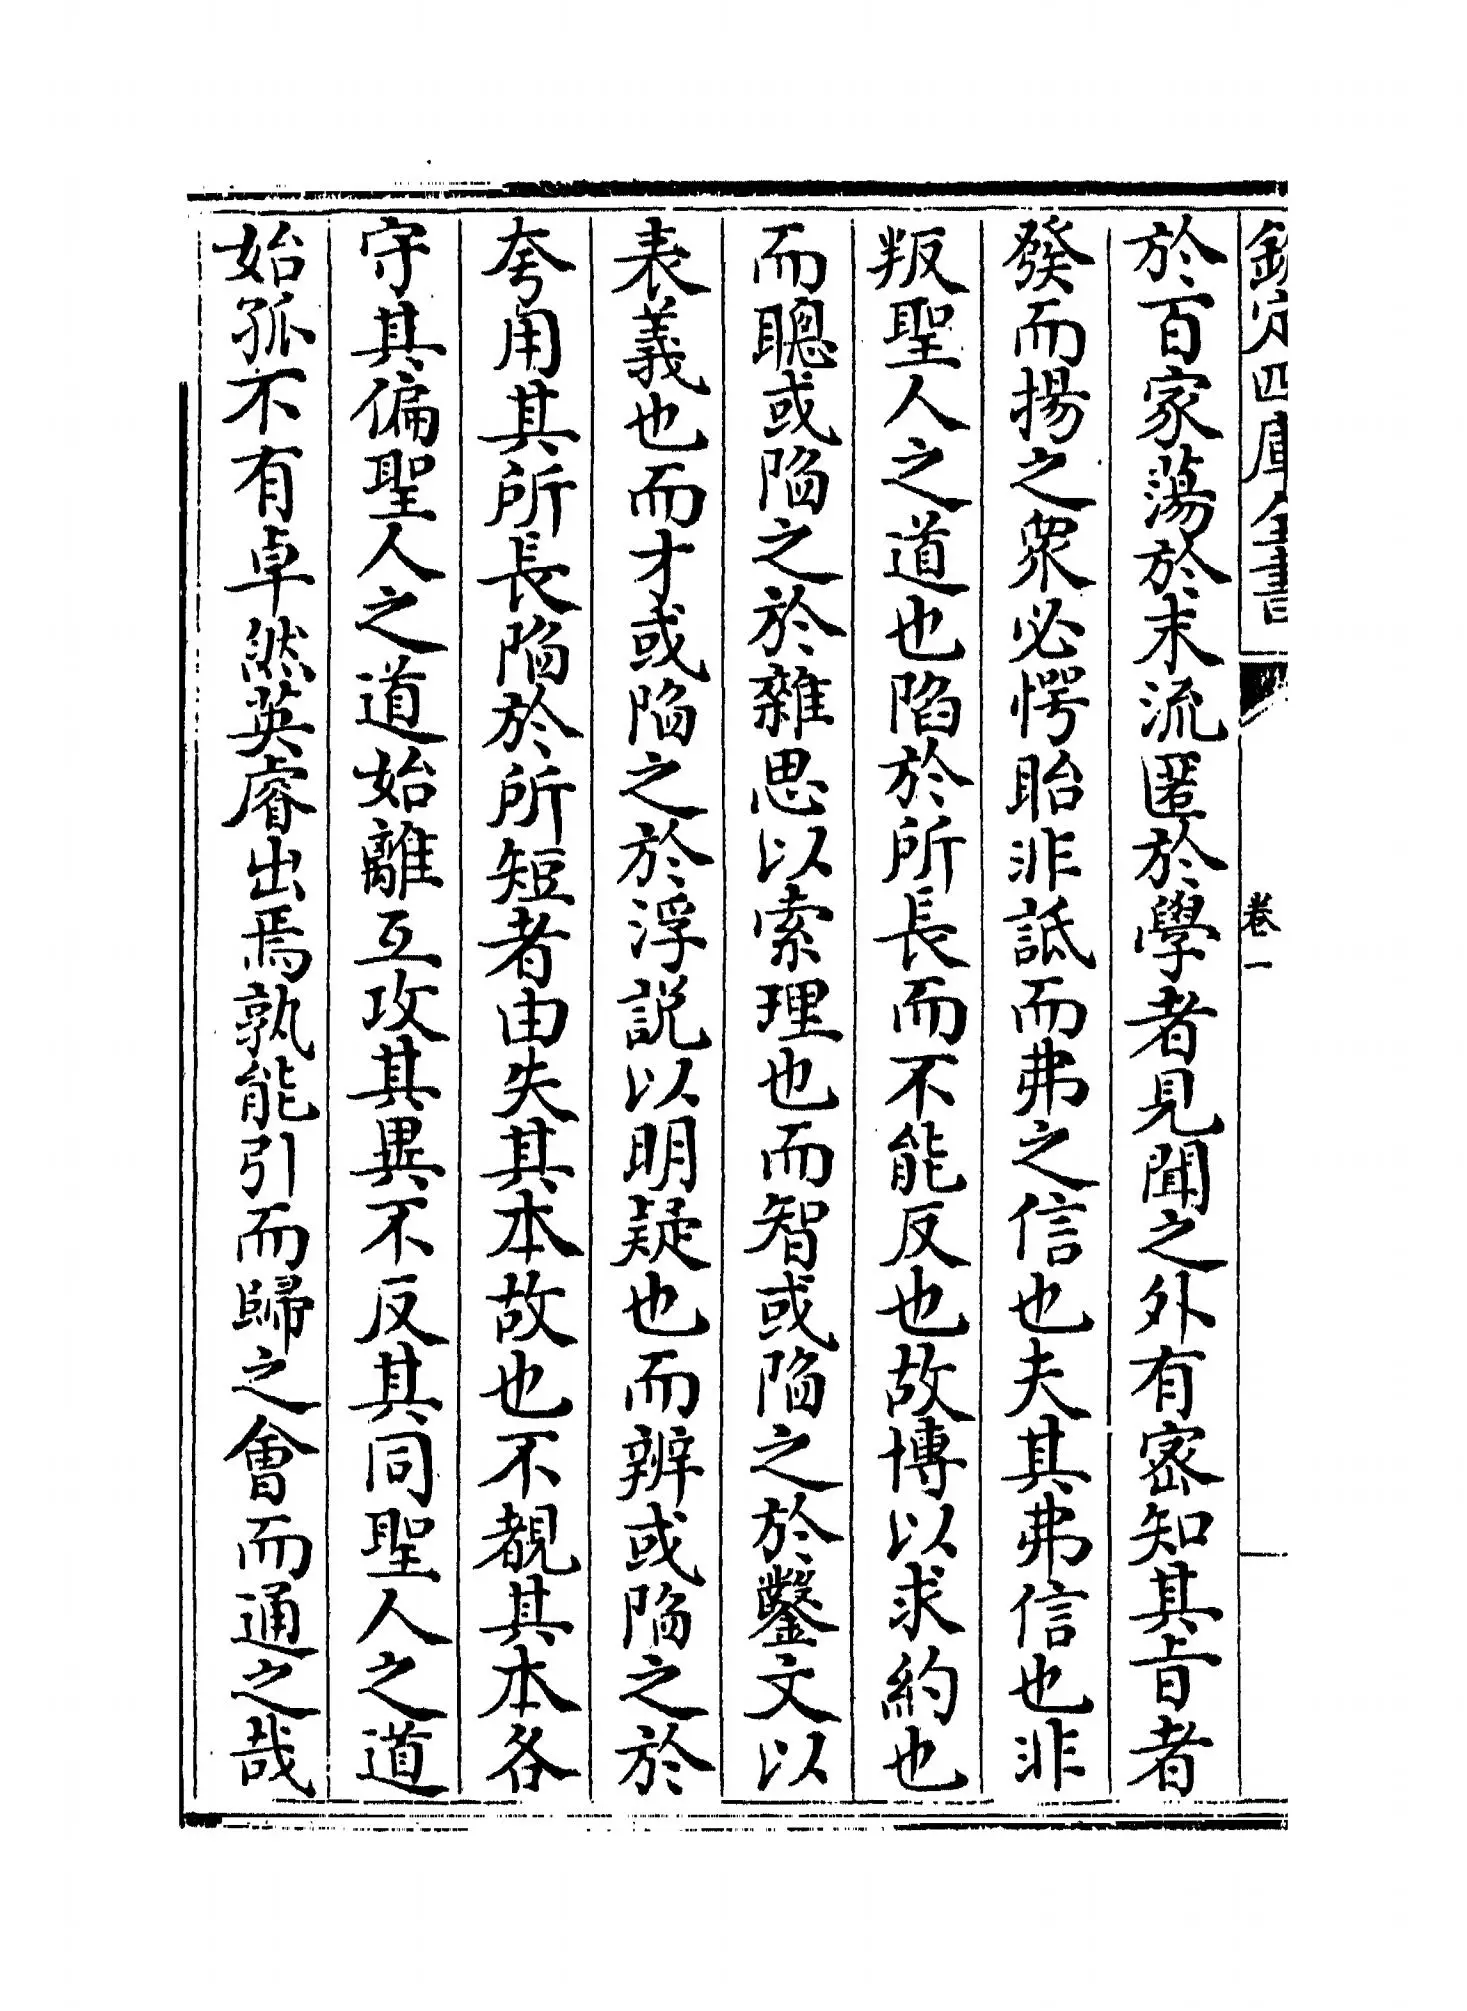 欽定四庫全書
卷一
於百家蕩於末流匿於學者見聞之外有宻知其㫖者
發而揚之衆必愕眙非詆而弗之信也夫其弗信也非
叛聖人之道也陷於所長而不能反也故博以求約也
而聰或陷之於雜思以索理也而智或陷之於鑿文以
表義也而才或陷之於浮説以明疑也而辨或陷之於
夸用其所長陷於所短者由失其本故也不覩其本各
守其偏聖人之道始離互攻其異不反其同聖人之道
始孤不有卓然英睿出焉孰能引而歸之㑹而通之哉